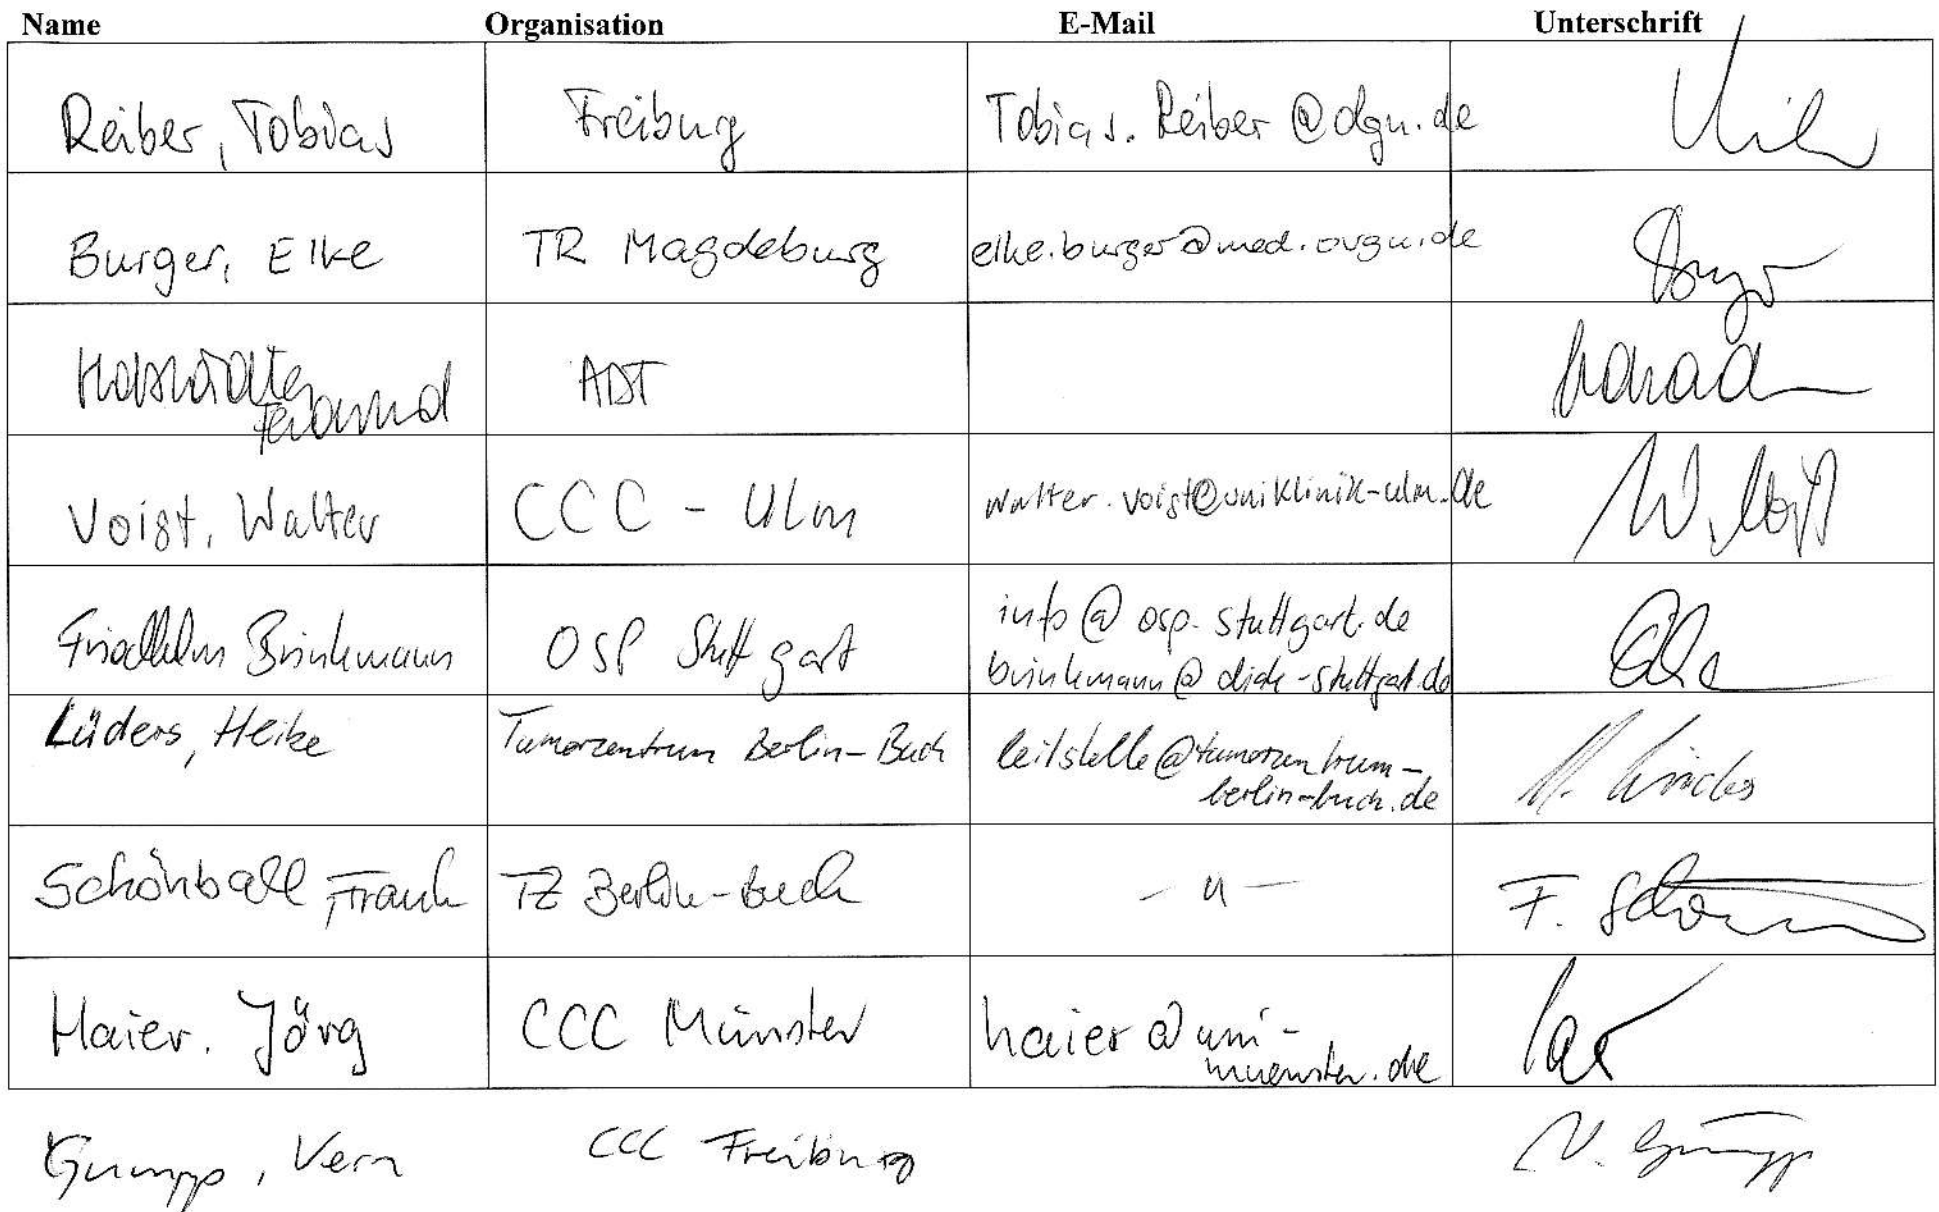 Name Organisation E-Mail Unterschrift
Reiber, Tobias Freiburg Tobias.Reiber@dgu.de
Burger, Elke TR Magdeburg elke.burger@med.ovgu.de
ADT
Voigt, Walter CCC - Ulm walter.voigt@uniklinik-ulm.de W. Voigt
Friedhelm Brinkmann OSP Stuttgart info@osp-stuttgart.de
brinkmann@diak-stuttgart.de
Lüders, Heike Tumorzentrum Berlin-Buch leitstelle@tumorzentrum-
berlin-buch.de H. Lüders
Schönball, Frank TZ Berlin-Buch - " - F.
Haier, Jörg CCC Münster haier@uni-
muenster.de
Gumpp, Vera CCC Freiburg V. Gumpp